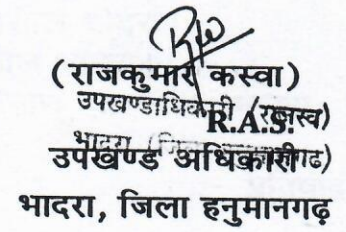 (राजकुमार कस्वा)
उपखण्डाधिकारी (राजस्व)
R.A.S.
भादरा (जिला हनुमानगढ)
उपखण्ड अधिकारी
भादरा, जिला हनुमानगढ़